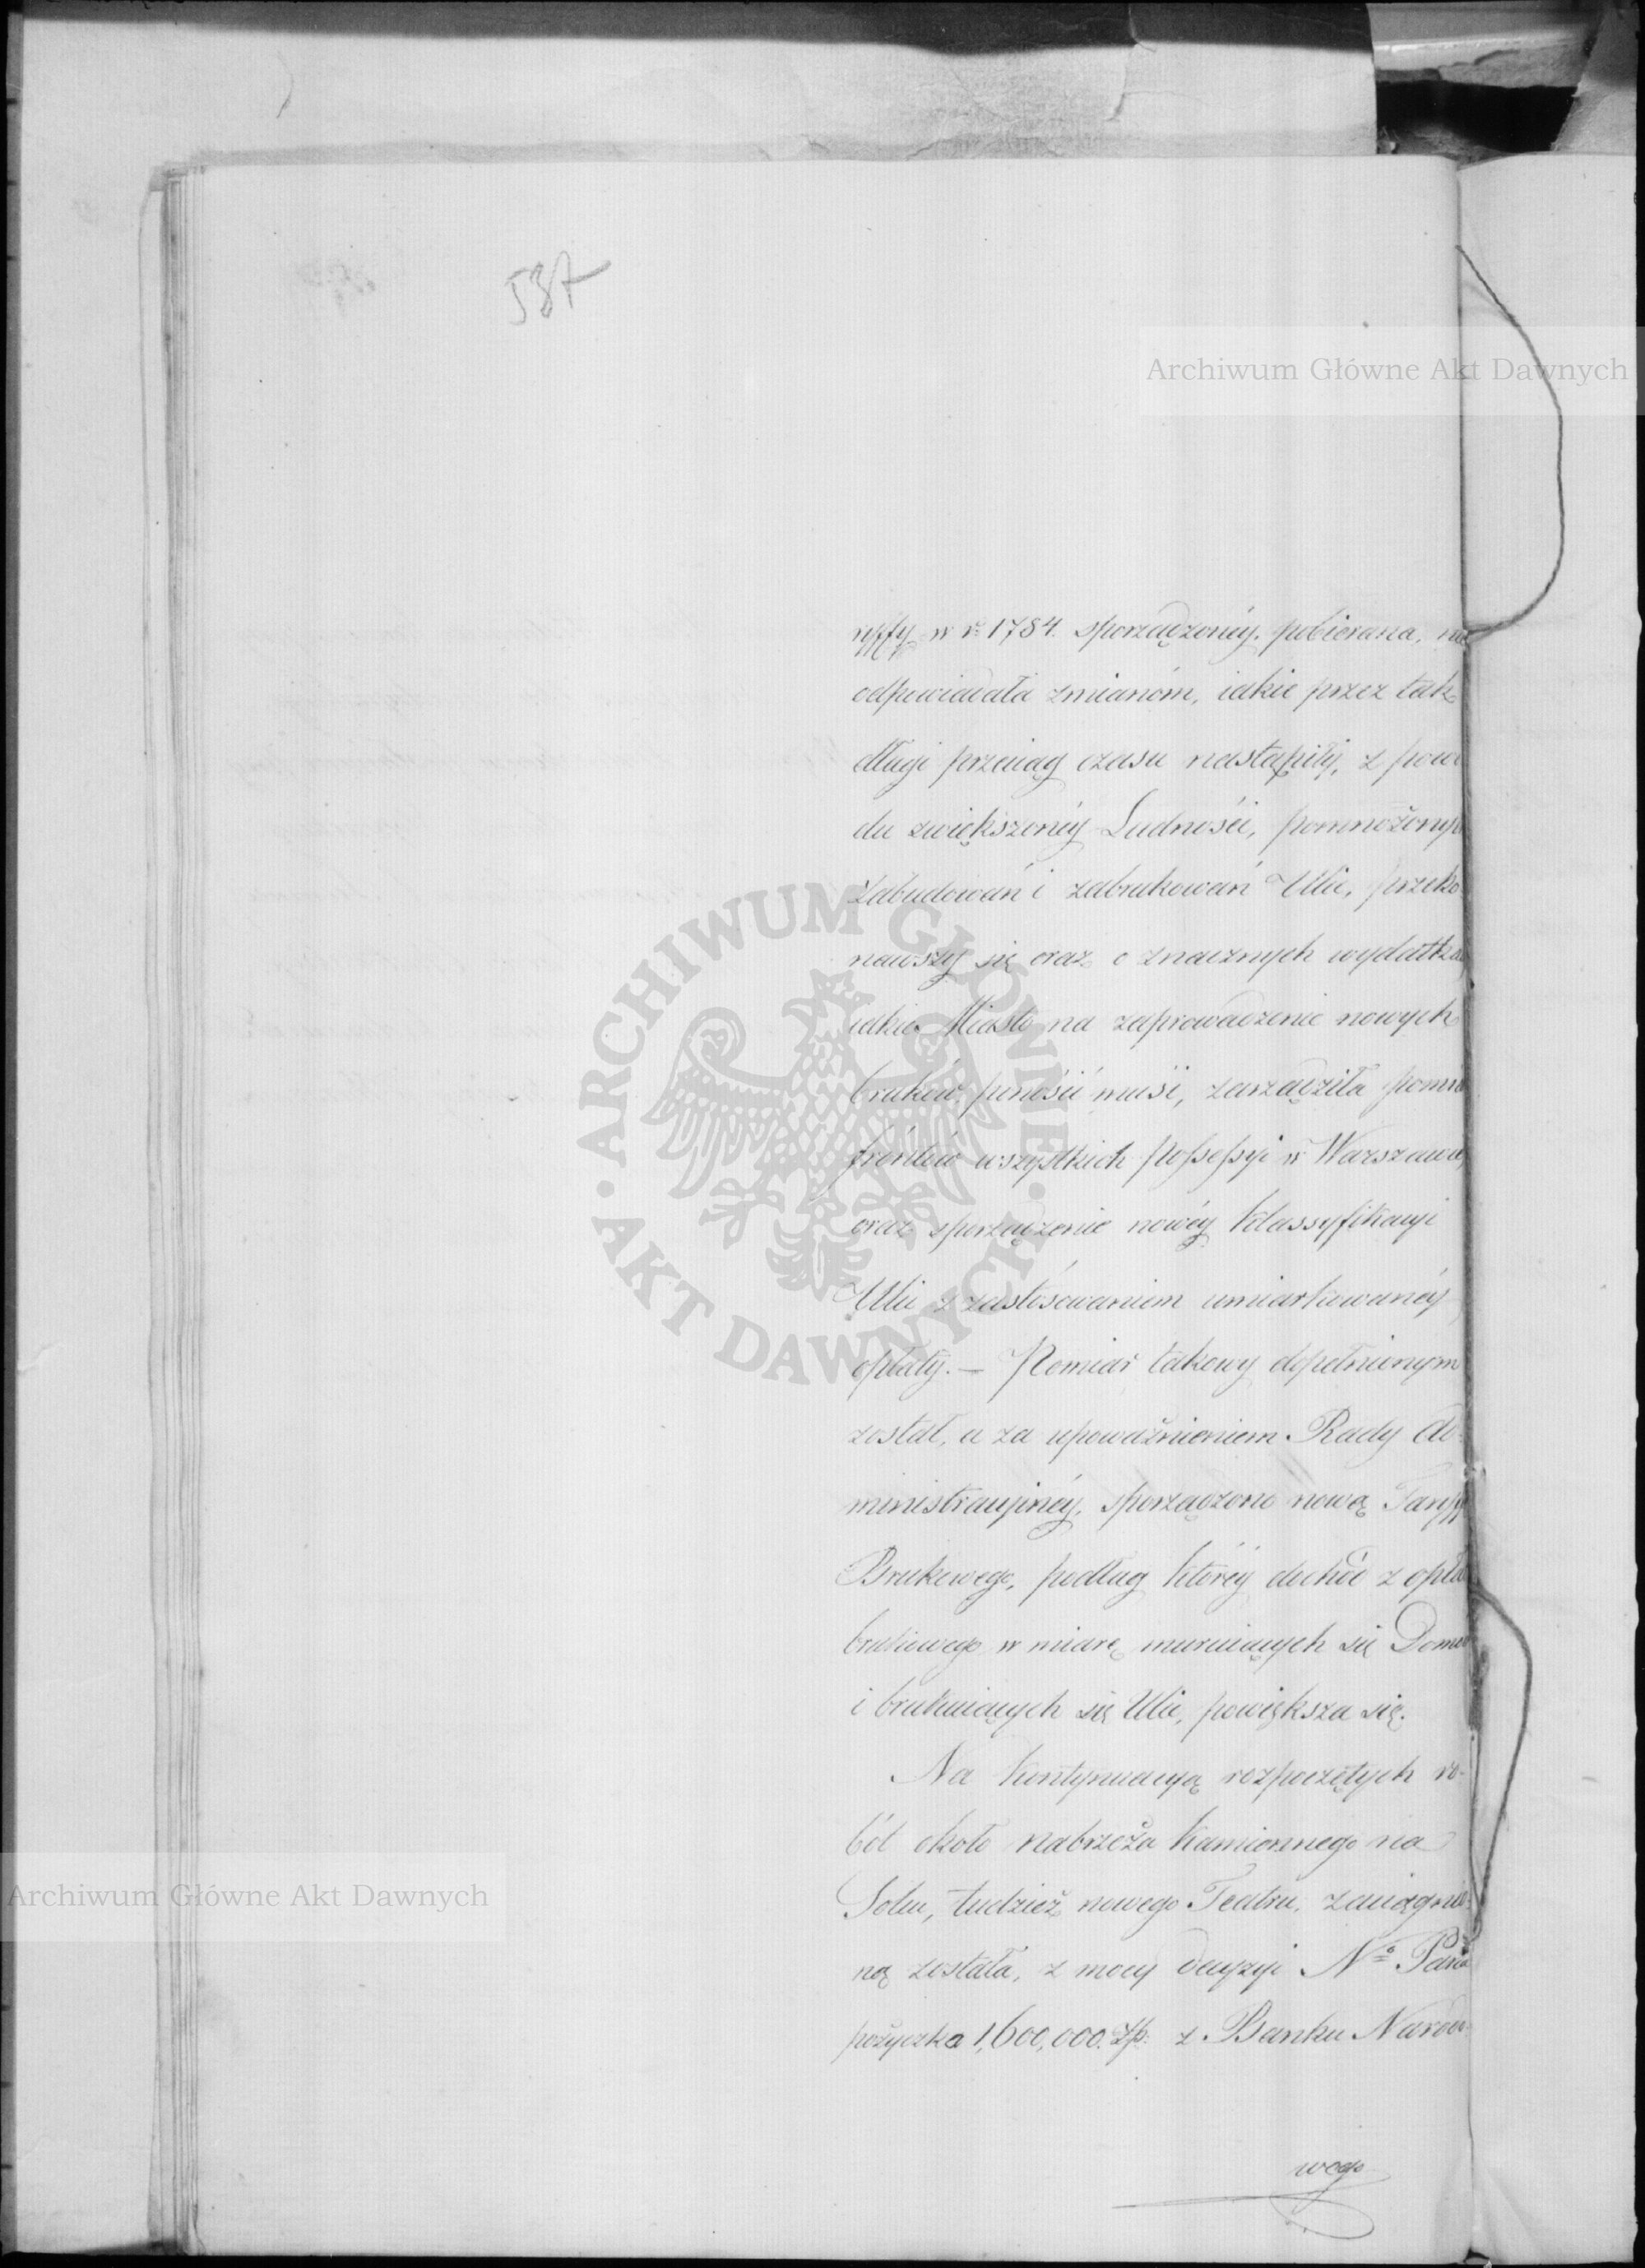 537
Archiwum Główne Akt Dawnych
ryffy w r: 1784. sporządzonéy, pobierana, nie
odpowiadała zmianóm, iakie przez tak
długi przeciąg czasu nastąpiły, z powo
du zwiększonéy Ludnośći, pomnożonych
Zabudowań i zabrukowań Ulic, przeko
nawszy się oraz o znacznych wydatka
iakie Miasto na zaprowadzenie nowych
bruków ponośić muśi, zarządziła pomia
fróntów wszystkich Possessyi w Warszawie
oraz sporządzenie nowéy klassyfikacyi
Ulic z zastósowaniem umiarkowanéy
opłaty. — Pomiar takowy dopełnionym
został, a za upoważnieniem Rady Ad-
ministracyinéy, sporządzono nową Taryff
Brukowego, podług któréy dochód z opła
brukowego w miarę muruiących się Domów
i brukuiących się Ulic, powiększa się.
Na kontynuacyą rozpoczętych ro-
bót około nabrzeża kamiennego na
Solcu, tudzież nowego Teatru, zaciągnię-
ną została, z mocy decyzyi No Pana
pożyczka 1,600,000. Zł: z Banku Narodo-
wego
ARCHIWUM GŁÓWNE · AKT DAWNYCH ·
Archiwum Główne Akt Dawnych